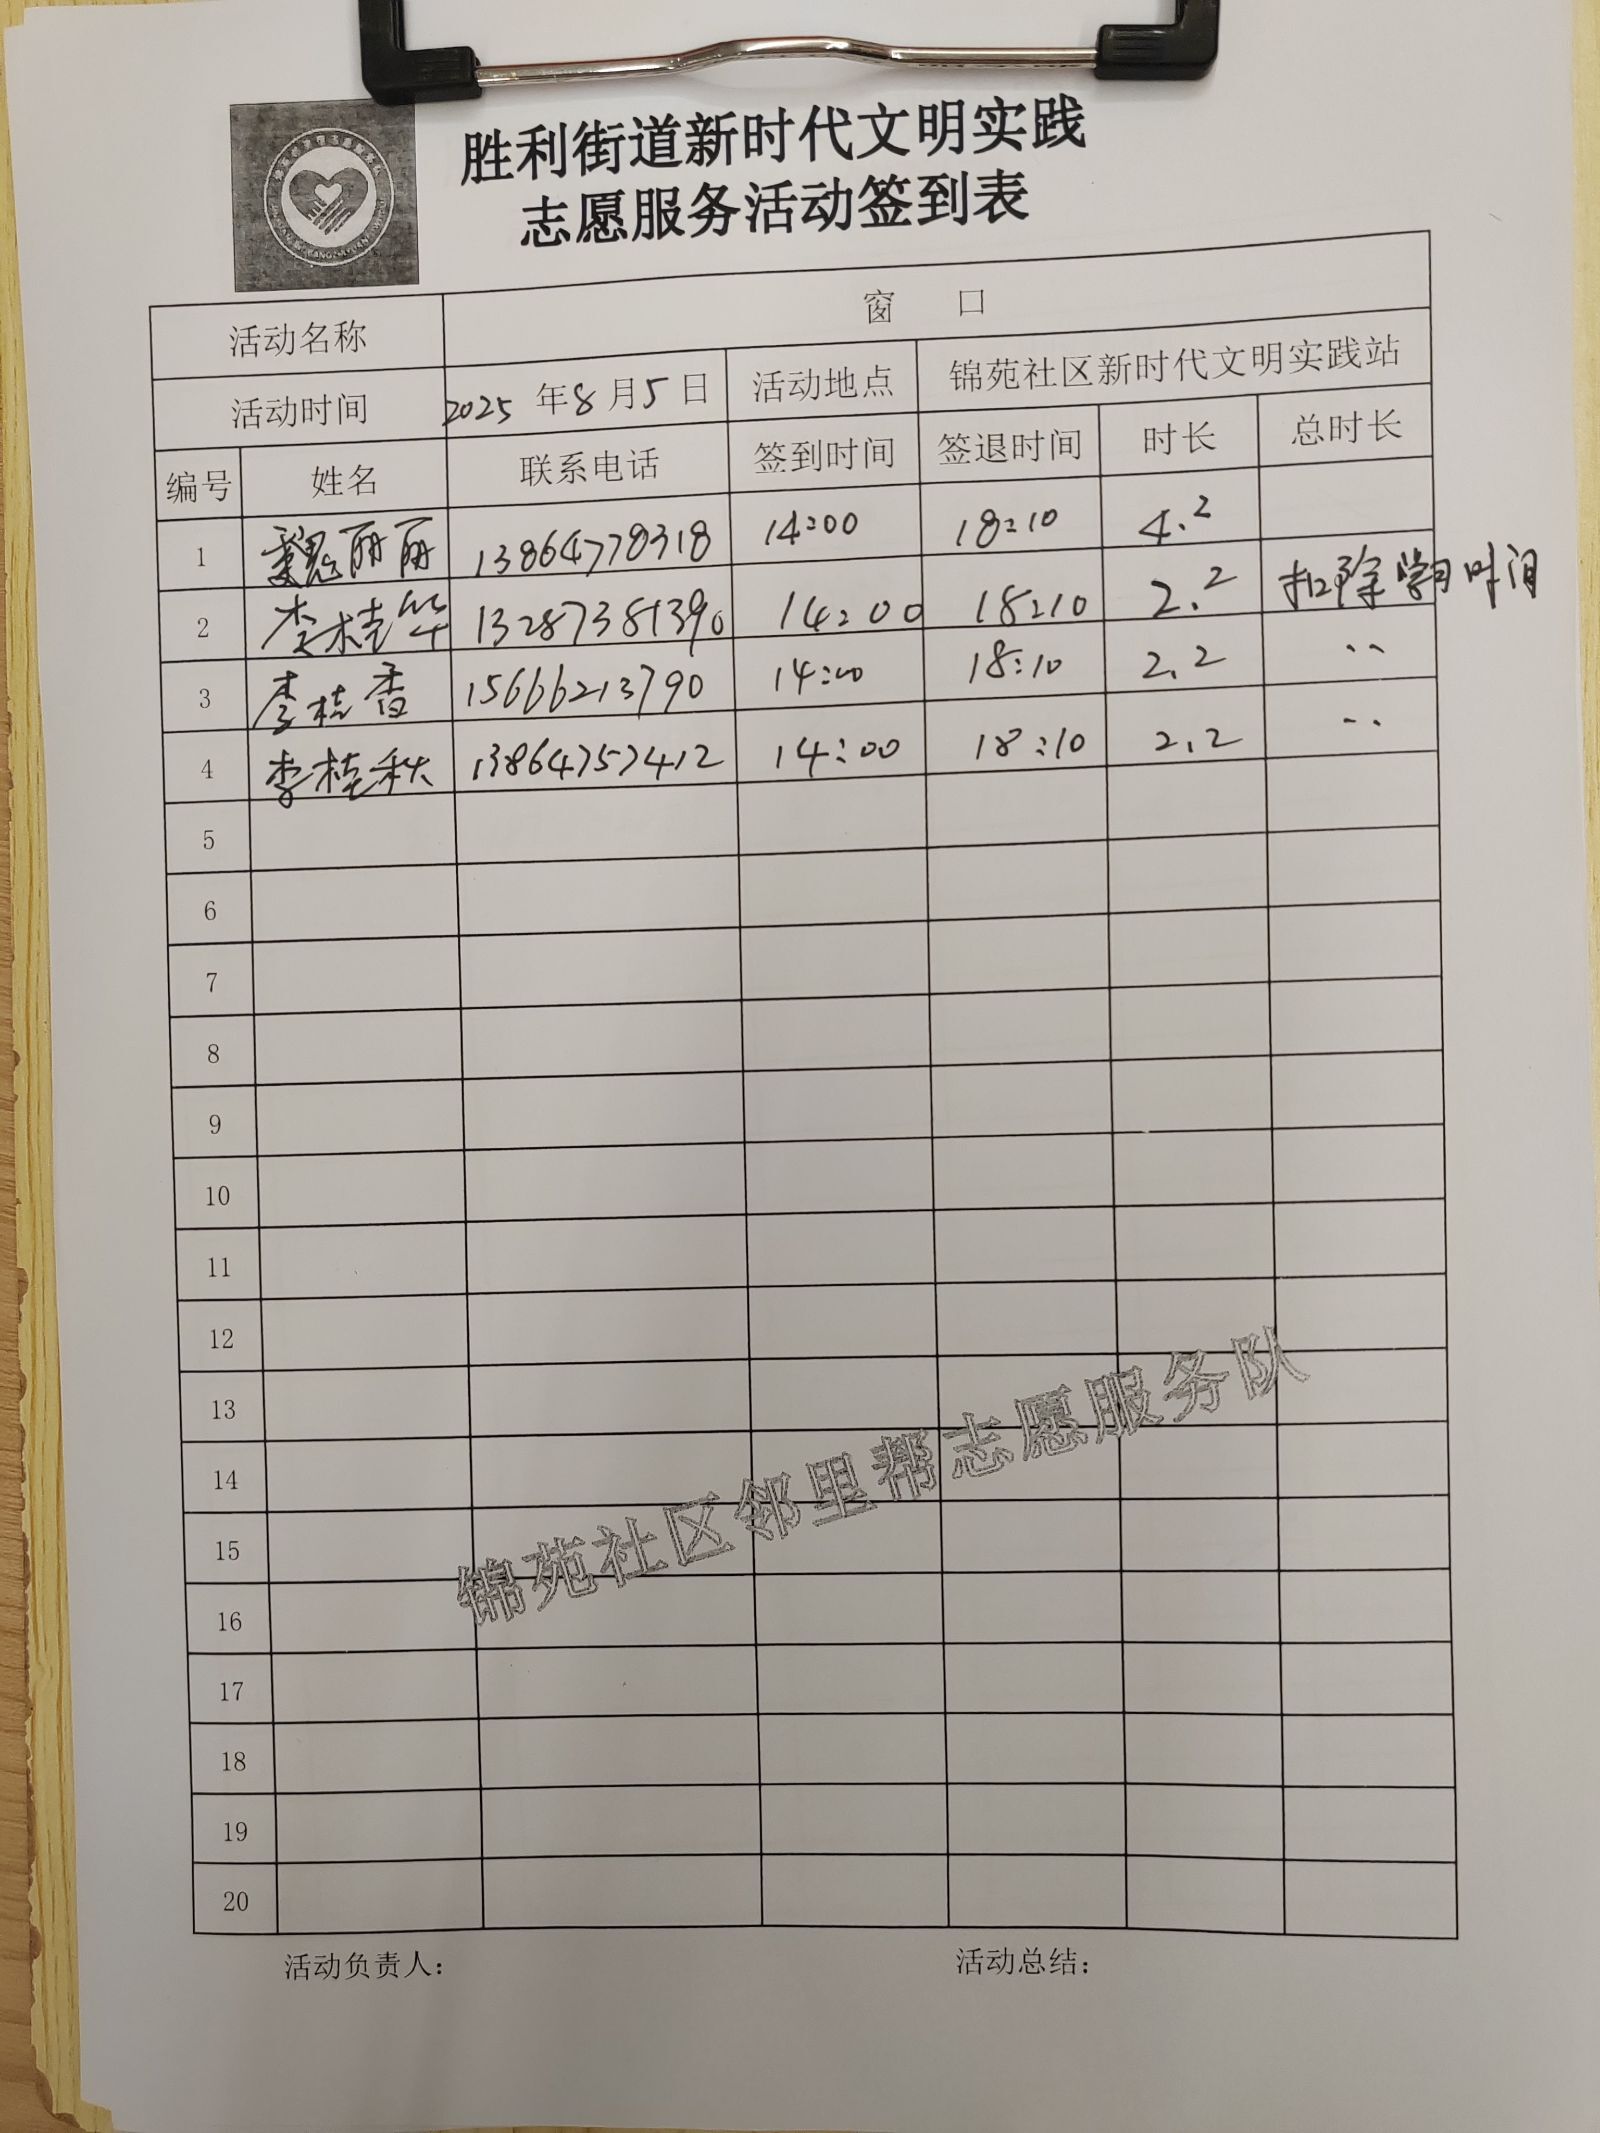 胜利街道新时代文明实践
志愿服务活动签到表
活动名称 窗 口
活动时间 2025年8月5日 活动地点 锦苑社区新时代文明实践站
编号 姓名 联系电话 签到时间 签退时间 时长 总时长
1 魏丽丽 13864778318 14:00 18:10 4.2
2 李桂华 13287381390 14:00 18:10 2.2 扣除学习时间
3 李桂香 15666213790 14:00 18:10 2.2 ··
4 李桂秋 13864757412 14:00 18:10 2.2 ··
5
6
7
8
9
10
11
12
13
14
15
16
17
18
19
20
锦苑社区邻里帮志愿服务队
活动负责人： 活动总结：